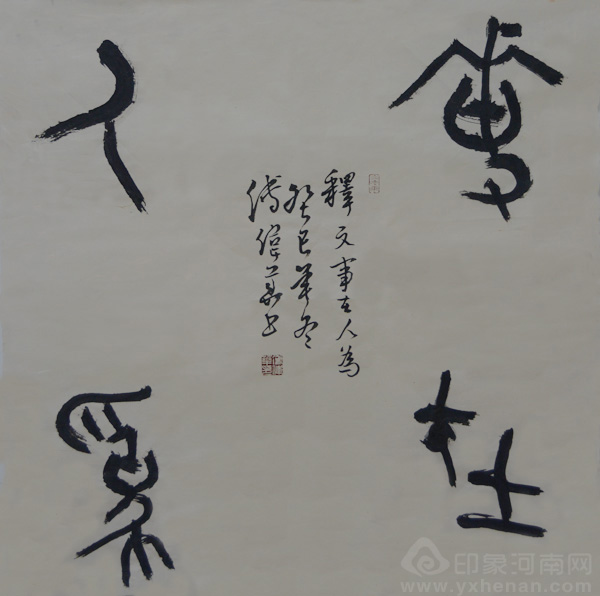 事在
人為
釋文事在人為
癸巳年冬
印象河南网
www.yxhenan.com